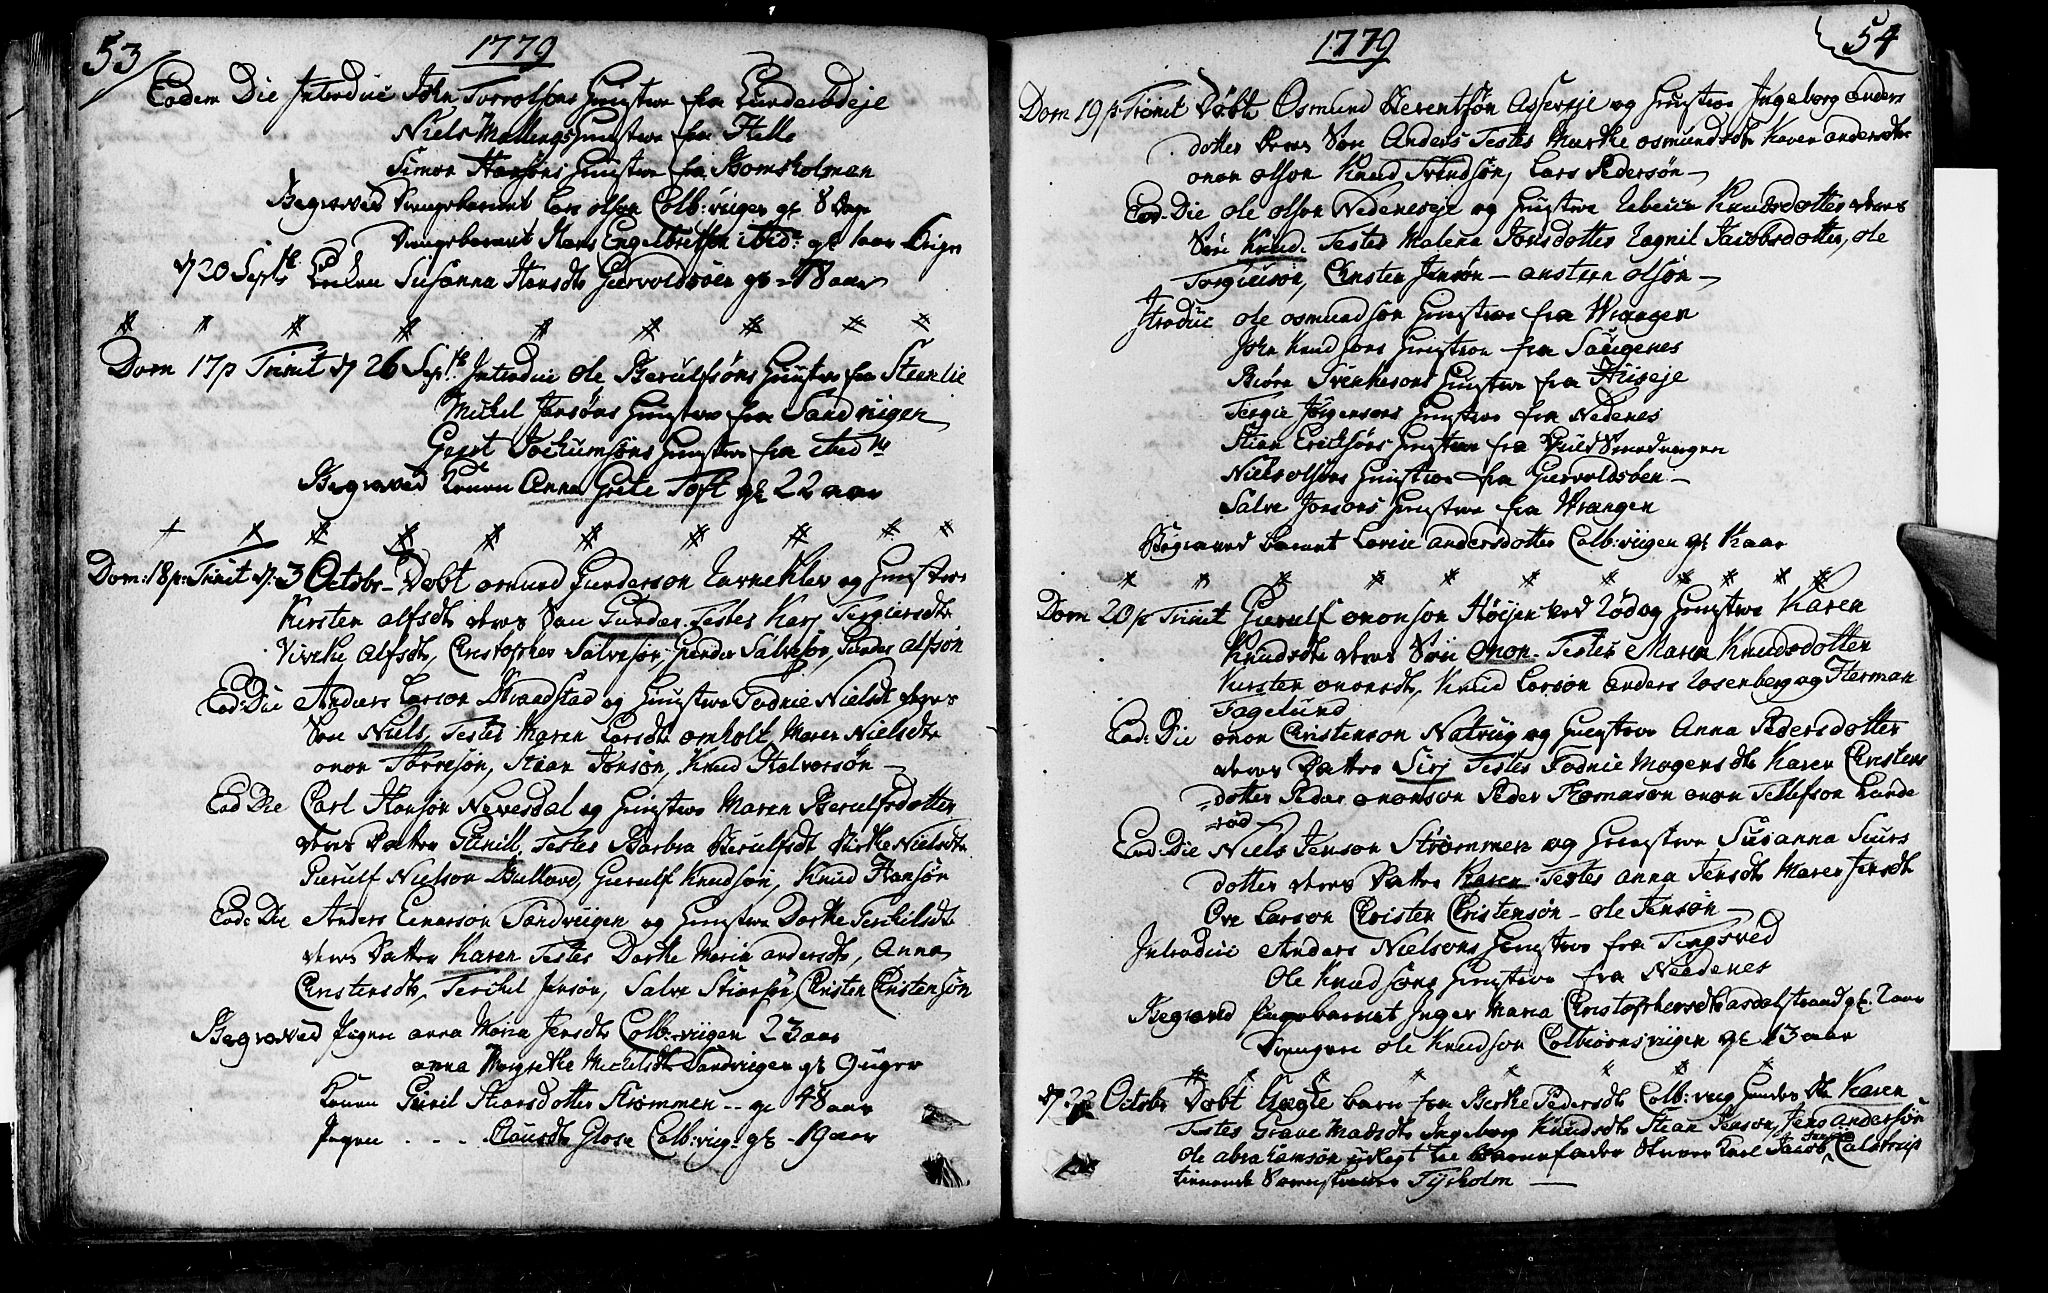 53
1779
Eodem Die Introduc John Torrolfsons Hustroe fra Gunderødeje
Niels Mallings Hustroe fra Helle
Simon Hansøns Hustroe fra Bomsholman
Begraved Drengebarnet Lars olson Colb:viigen gl 8 Dage
Drengebarnet Hans Engelbretson ibid
d 20 Septbr Susanna Hansdtr Giervoldsøen gl 78 aar
Dom 17 p Trinit d 26 Septbr Introduc Ole Berulfsøns Hustroe fra
Michel Jensøns Hustroe fra Sandviigen
Gert Jochumsøns Hustroe fra ibid
Begraved Konen Anna Grete Toft gl 22 aar
Dom: 18 p: Trinit d: 3 Octobr Døbt omund Gunderson Ravneklev og Hustroe
Kirsten alfsdtr deres Søn Gunder. Testes Karj Tergiersdtr
Vivike alfsdtr, Christopher Salvesøn, Gunder Salvesøn, Gunder alfsøn
Eod: Die Anders Larson Strandstad og Hustroe Todnie Nielsdtr deres
Søn Niels, Testes Maren Larsdtr omholt, Maren Nielsdtr
onon Torresøn, Stian Jonsøn, Knud Halvorsøn
Eod Die Carl Hansøn Nevesdal og Hustroe Maren Berulfsdotter
deres Datter Gunill. Testes Barbra Berulfsdtr Birthe Nielsdtr
Gierulf Nielson Gierulf Knudsøn, Knud Hansøn
Eod: Die Anders Einersøn Sandviigen og Hustroe Dorthe Terchilsdtr
deres Datter Karen Testes Dorthe Maria andersdtr, Anna
Christensdtr, Terchel Jensøn, Salve Stiansøn, Christen Christensøn
Begraved Pigen anna Maria Jensdtr Colb:viigen 23 aar
anna Margrethe Michelsdtr Sandviigen gl 9 uger
Konen Gunil Stiansdotter Strømmen gl 48 aar
Pigen Clausdtr Glose Colb:viig gl 19 aar
1779
54
Dom 19 p Trinit Døbt Osmund Berentsøn Assereje og Hustroe Ingeborg anders
dotter deres Søn Anders Testes Marthe osmundsdtr Karen andersdtr
onon olson Knud Svendsøn, Lars Pedersøn
Eod: Die ole olson Nedeneseje og Hustroe Knudsdotter deres
Søn Knud. Testes Malena Jonsdotter Ragnil Jacobsdotter, ole
Torgiusøn, Christen Jensøn ansteen olsøn
Itroduc ole osmundson Hustroe fra Wrangen
John Knudsons Hustroe fra Saugenes
Biørn Svenkesons Hustroe fra Huseje
Tergie Jørgensons Hustroe fra Nedenes
Stian Ericksøns Hustroe fra
Niels olsøns Hustroe fra Giervoldsøen
Salve Jonsons Hustroe fra Wrangen
Begraved barnet Lovise andersdotter Colb:viigen gl aar
Dom 20 p Trinit Gierulf ononson Høgen ved Rød og Hustroe Karen
Knudsdtr deres Søn onon. Testes Maren Knudsdotter
Kirsten ononsdtr, Knud Larsøn anders Rosenberg og Herman
Fagelund
Eod: Die onon Christenson Natvig og Hustroe Anna Pedersdotter
deres Datter Sirj Testes Todnie Mogensdtr Karen Christens
dotter Peder ononson Peder Thomasøn onon Tellefson Lunde
rød
Eod: Die Niels Jenson Strømmen og Hustroe Susanna Siurs
dotter deres Datter Karen. Testes anna Jensdtr Maren Jensdtr
Ove Larson Christen Christensøn ole Jensøn
Introduc Anders Nielsons Hustroe fra Tingsved
Ole Knudsons Hustroe fra Needenes
Begraved Pigebarnet Inger Maria Christophersdtr asdalstrand gl: 2 aar
Drengen ole Knudson Colbiørnsviigen gl 13 aar
d: 22 Octobr Døbt Uægte barn fra Berthe Pedersdtr Colb:viig Karen
Testes Grave Madsdtr Ingeborg Knudsdtr Stian Jenson, Jens Andersøn
ole abrahamsøn udlagt til Barnefader Karl Jacob Calstrup
tienende Fyrholm